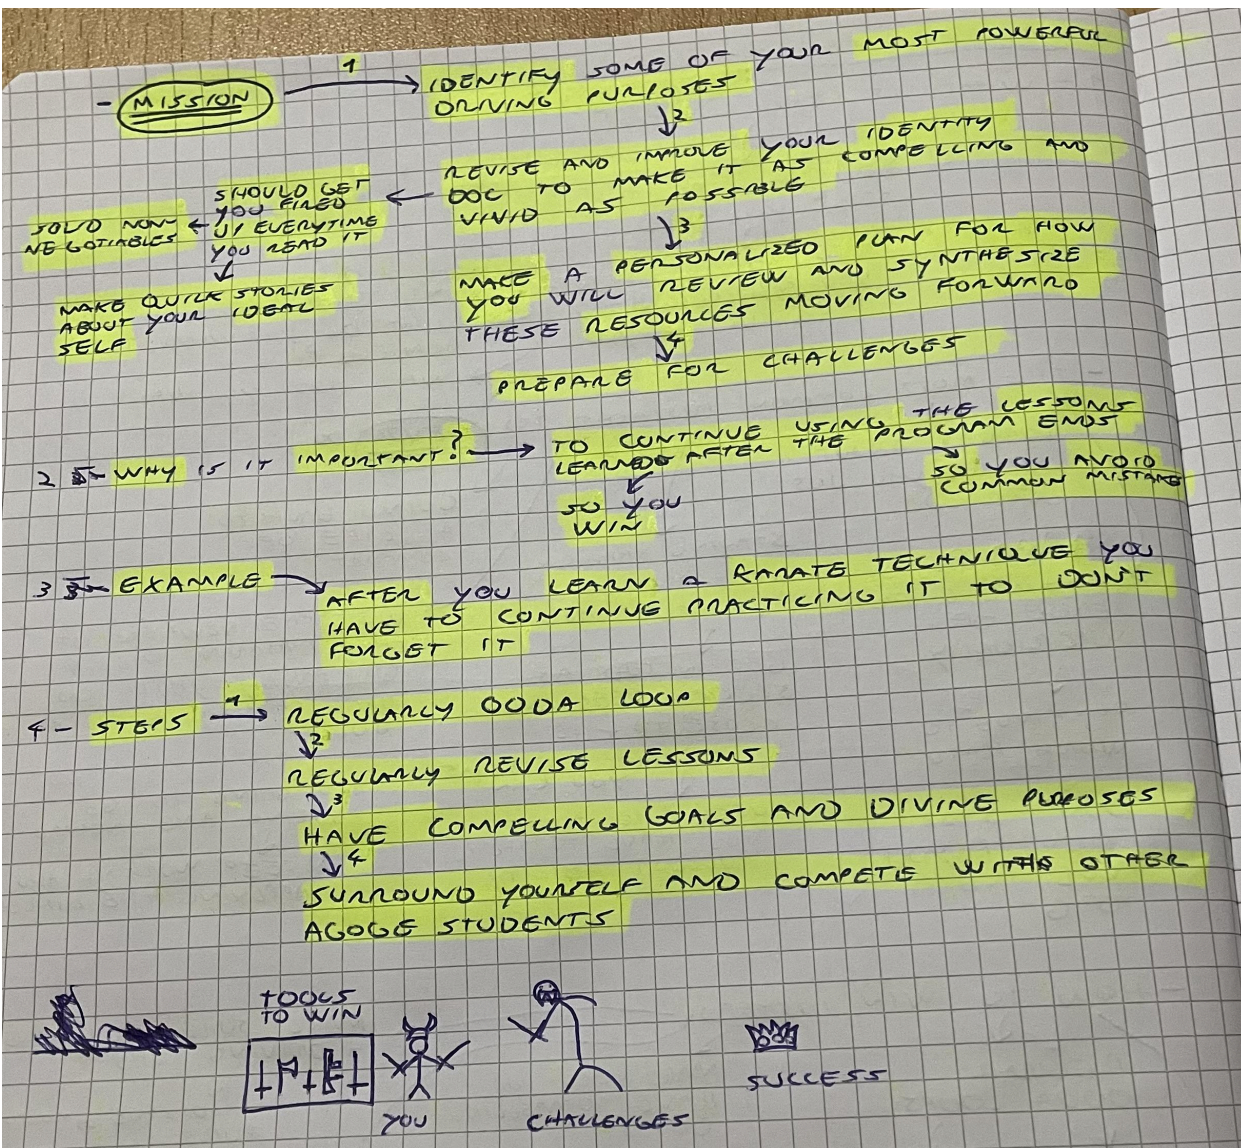 - MISSION
1
IDENTIFY SOME OF YOUR MOST POWERFUL
DRIVING PURPOSES
2
REVISE AND IMPROVE YOUR IDENTITY
DOC TO MAKE IT AS COMPELLING AND
VIVID AS POSSIBLE
SHOULD GET
YOU FIRED
UP EVERYTIME
YOU READ IT
SOLID NON-
NEGOTIABLES
MAKE QUICK STORIES
ABOUT YOUR IDEAL
SELF
3
MAKE A PERSONALIZED PLAN FOR HOW
YOU WILL REVIEW AND SYNTHESIZE
THESE RESOURCES MOVING FORWARD
4
PREPARE FOR CHALLENGES
2 - WHY IS IT IMPORTANT?
TO CONTINUE USING THE LESSONS
LEARNED AFTER THE PROGRAM ENDS
SO YOU
WIN
SO YOU AVOID
COMMON MISTAKES
3 - EXAMPLE
AFTER YOU LEARN A KARATE TECHNIQUE YOU
HAVE TO CONTINUE PRACTICING IT TO DON'T
FORGET IT
4 - STEPS
1
REGULARLY OODA LOOP
2
REGULARLY REVISE LESSONS
3
HAVE COMPELLING GOALS AND DIVINE PURPOSES
4
SURROUND YOURSELF AND COMPETE WITH OTHER
AGOGE STUDENTS
TOOLS
TO WIN
YOU
CHALLENGES
SUCCESS